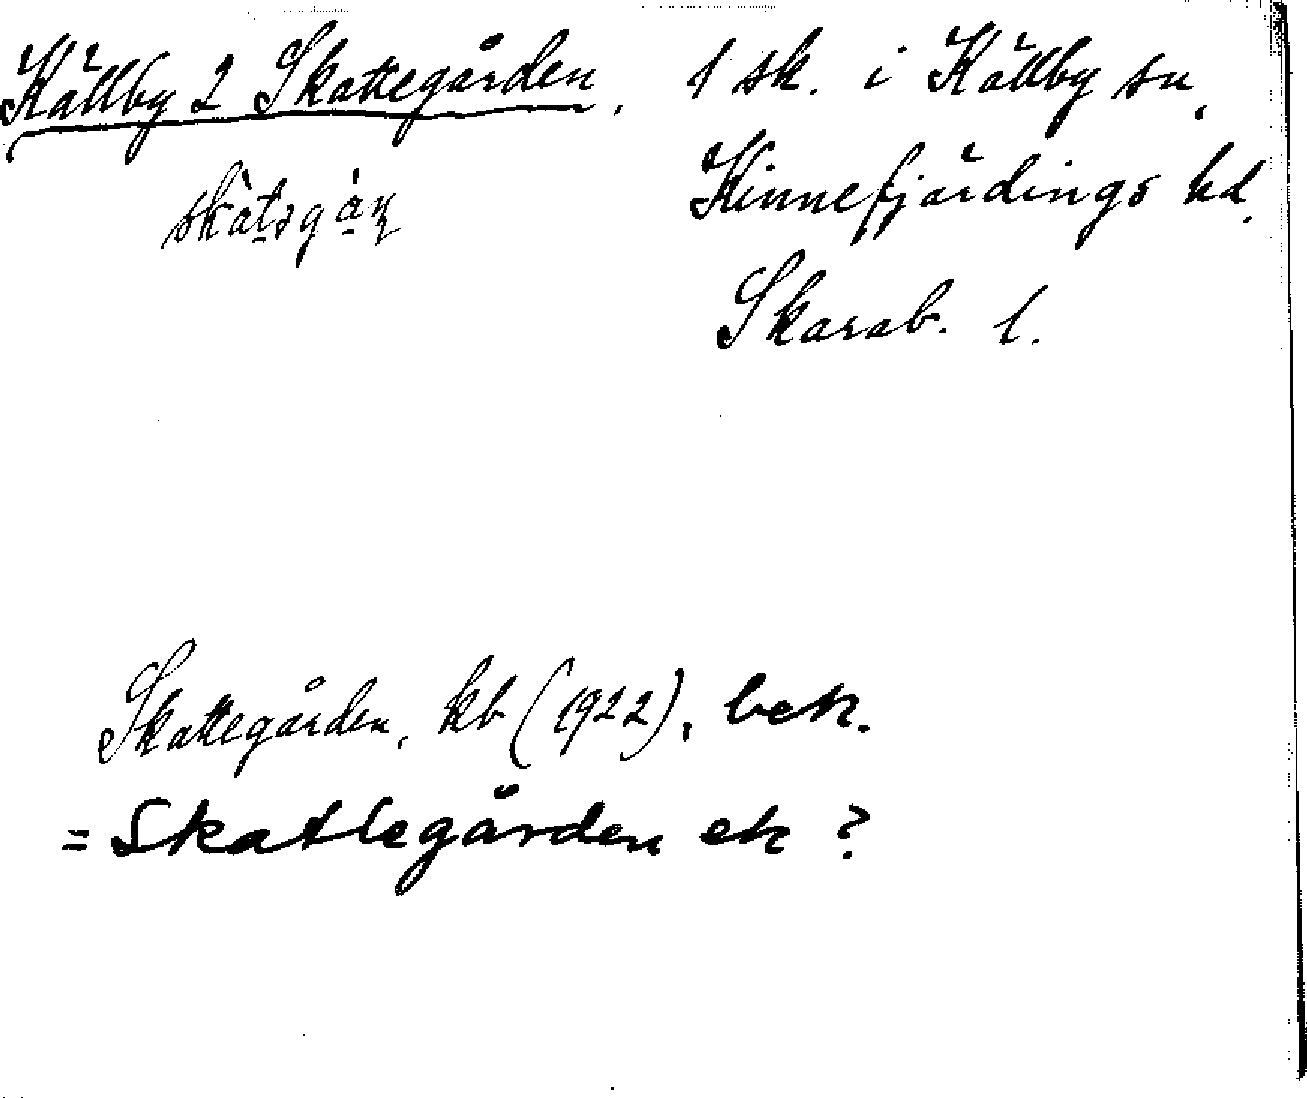 Källby 2 Skattegården. 1 sk. i Källby sn,
skàtsgán Kinnefjärdings hd.
Skarab. l.
Skattegården, kb (1922), bek.
= Skattegården ek ?